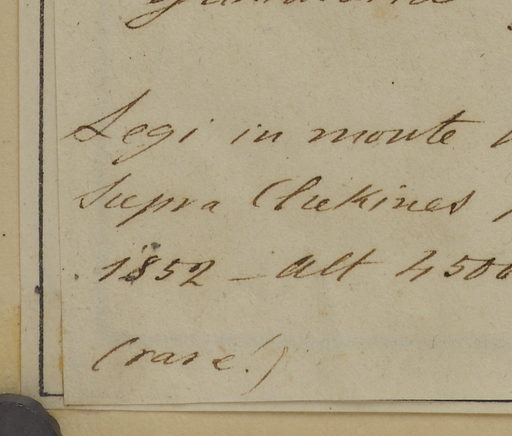 Legi in monte
supra Clukines
1852 - alt 4500
(rare!)